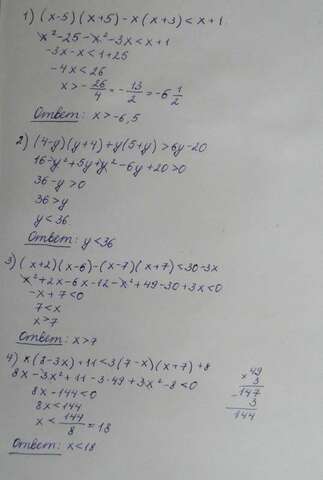 1) (x-5)(x+5)-x(x+3)<x+1
x²-25-x²-3x<x+1
-3x-x<1+25
-4x<26
x>-26/4=-13/2=-6 1/2
Ответ: x>-6,5
2) (4-y)(y+4)+y(5+y)>6y-20
16-y²+5y+y²-6y+20>0
36-y>0
36>y
y<36
Ответ: y<36
3) (x+2)(x-6)-(x-7)(x+7)<30-3x
x²+2x-6x-12-x²+49-30+3x<0
-x+7<0
7<x
x>7
Ответ: x>7
4) x(8-3x)+11<3(7-x)(x+7)+8
8x-3x²+11-3·49+3x²-8<0
8x-144<0
8x<144
x<144/8=18
Ответ: x<18
x 49
3
-147
3
144